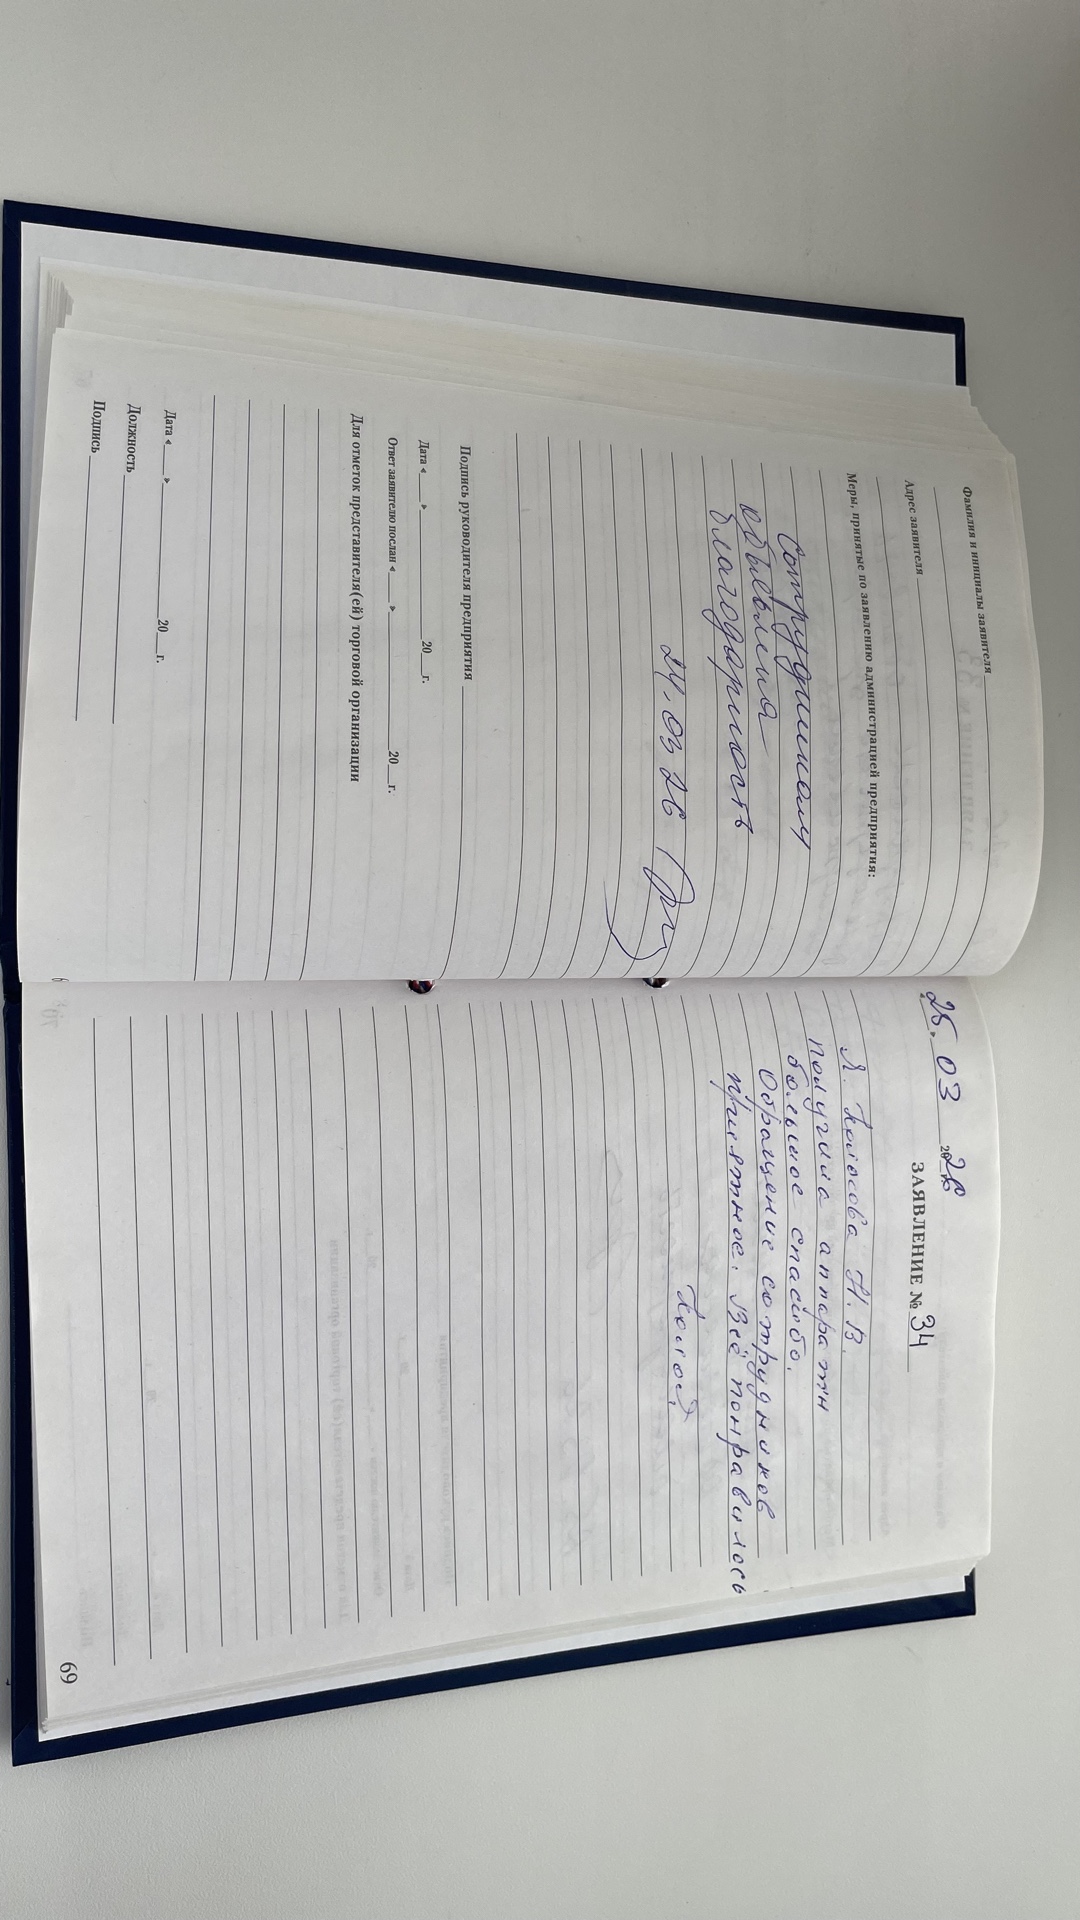 Фамилия и инициалы заявителя
Адрес заявителя
Меры, принятые по заявлению администрацией предприятия:
Сотрудникам
объявлена
благодарность
24.03 26
Подпись руководителя предприятия
Дата « » 20 г.
Ответ заявителю послан « » 20 г.
Для отметок представителя(ей) торговой организации
Дата « » 20 г.
Должность
Подпись
25. 03 2026
ЗАЯВЛЕНИЕ № 34
Я. Н.В.
получила аппараты
большое спасибо.
Обращение сотрудников
приятное. Всё понравилось
69